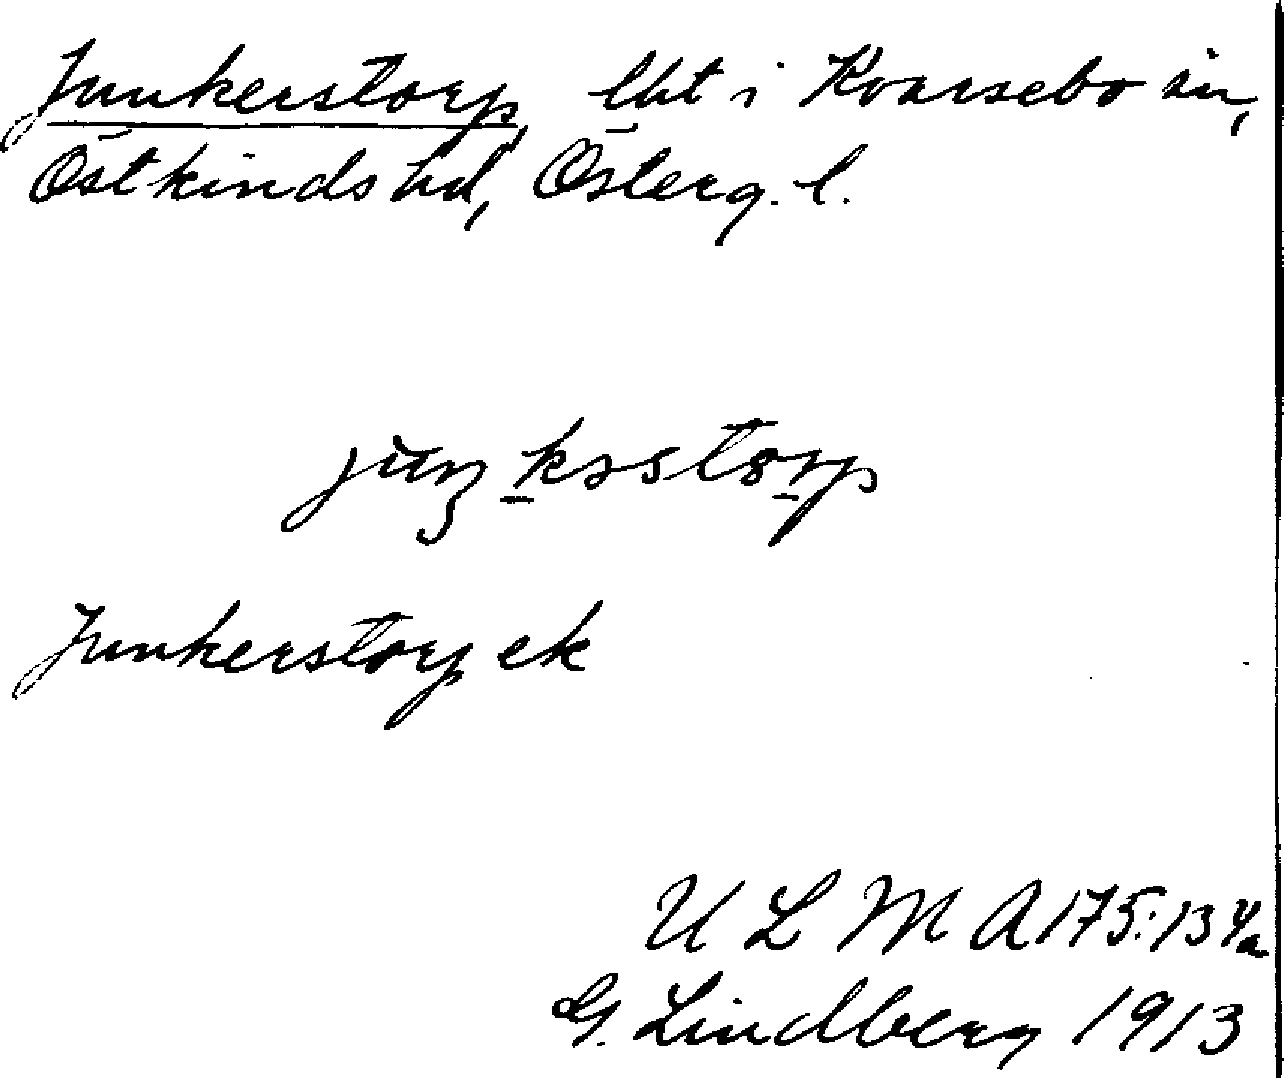 Junkerstorp lht i Kvarsebo sn,
Östkinds hd, Österg. l.
juŋksstorp
Junkerstorp ek
U L M A 175:134a
G. Lindberg 1913